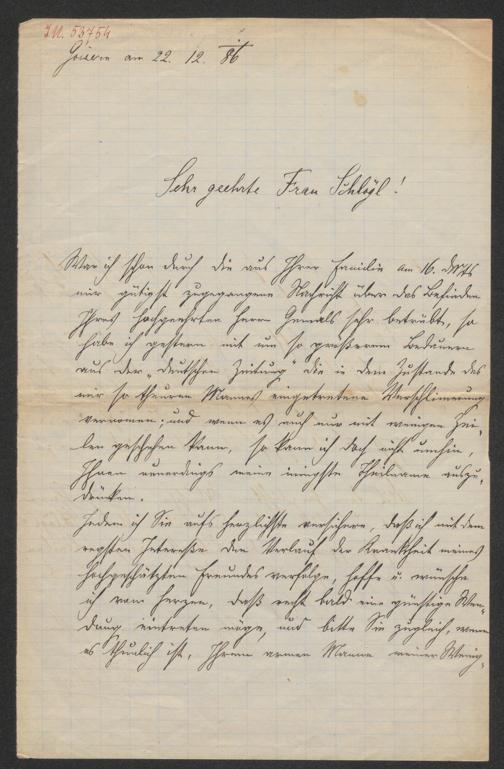 J.N. 53754
Goisern am 22. 12. 86
Sehr geehrte Frau Schlögl!
War ich schon durch die aus Ihrer Familie am 16. d. Mts
mir gütigst zugegangene Nachricht über das Befinden
Ihres hochgeehrten Herrn Gemals sehr betrübt, so
habe ich gestern mit um so größerem Bedauern
aus der „Deutschen Zeitung“ die in dem Zustande des
mir so theuren Mannes eingetretene Verschlimerung
vernomen; und wenn es auch nur mit wenigen Zei-
len geschehen kann, so kann ich doch nicht umhin,
Ihnen neuerdings meine innigste Theilname auszu-
drücken.
Indem ich Sie aufs herzlichste versichere, daß ich mit dem
regsten Interesse den Verlauf der Krankheit meines
hochgeschätzten Freundes verfolge, hoffe u. wünsche
ich vom Herzen, daß recht bald eine günstige Wen-
dung eintreten möge, und bitte Sie zugleich, wenn
es thunlich ist, Ihrem armen Manne meiner Wenig-